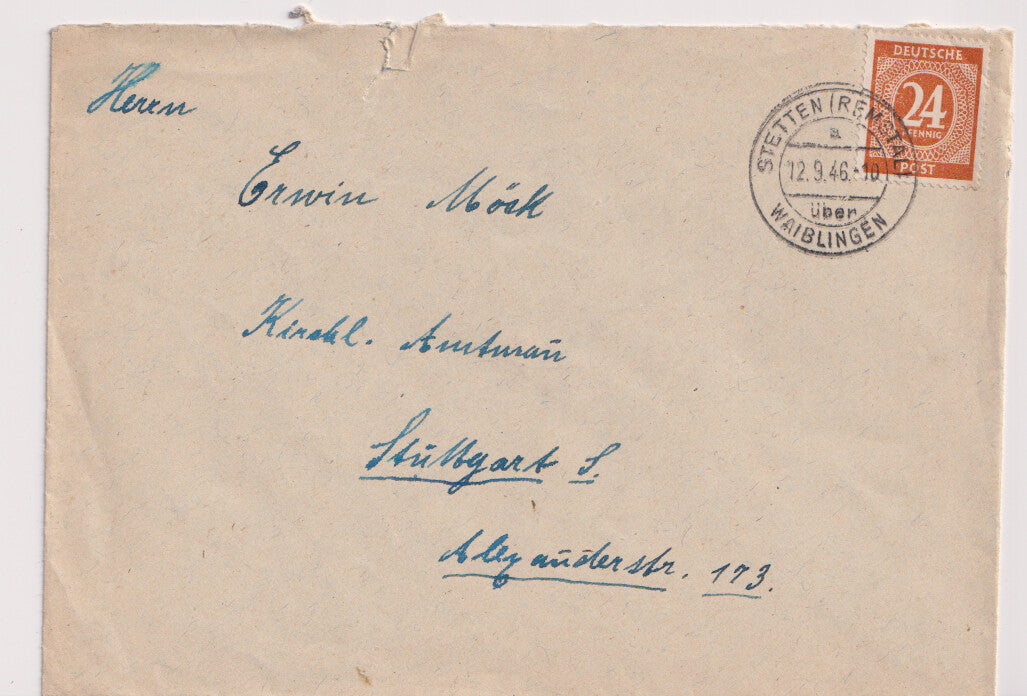 Herrn
DEUTSCHE
24
PFENNIG
POST
STETTEN (REMSTAL)
a
12.9.46.-10
über
WAIBLINGEN
Erwin Möck
Kirchl. Amtmañ
Stuttgart S.
Alexanderstr. 173.